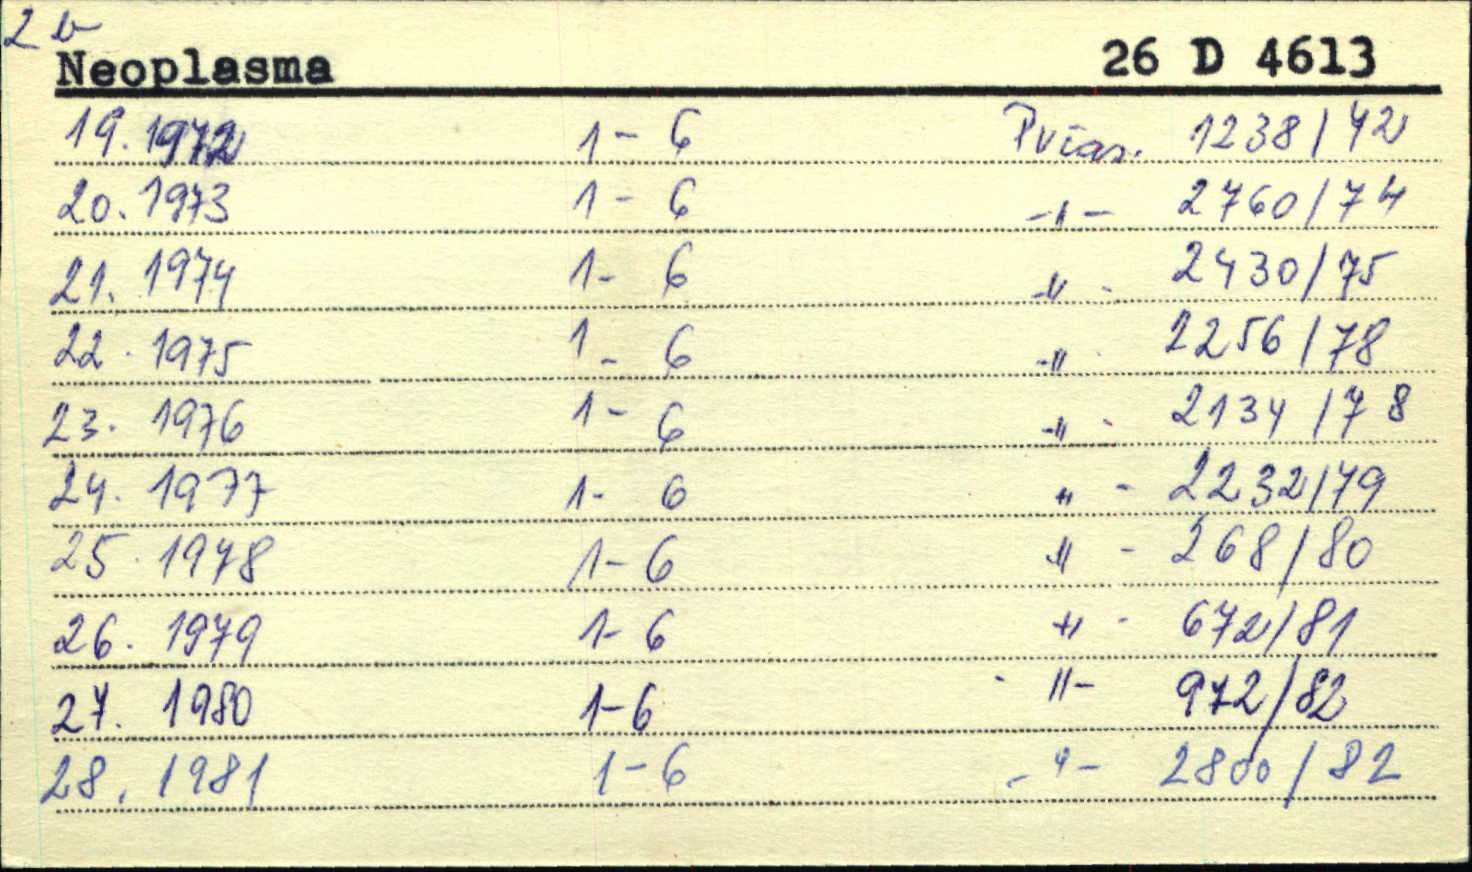 2 b
Neoplasma 26 D 4613
19. 1972 1 - 6 Pviaz. 1238/72
20. 1973 1 - 6 -"- 2760/74
21. 1974 1 - 6 -"- 2430/75
22. 1975 1 - 6 -"- 2256/78
23. 1976 1 - 6 -"- 2134/78
24. 1977 1 - 6 "- 2232/79
25. 1978 1 - 6 -"- 268/80
26. 1979 1 - 6 -"- 672/81
27. 1980 1 - 6 -"- 972/82
28. 1981 1 - 6 -"- 2800/82